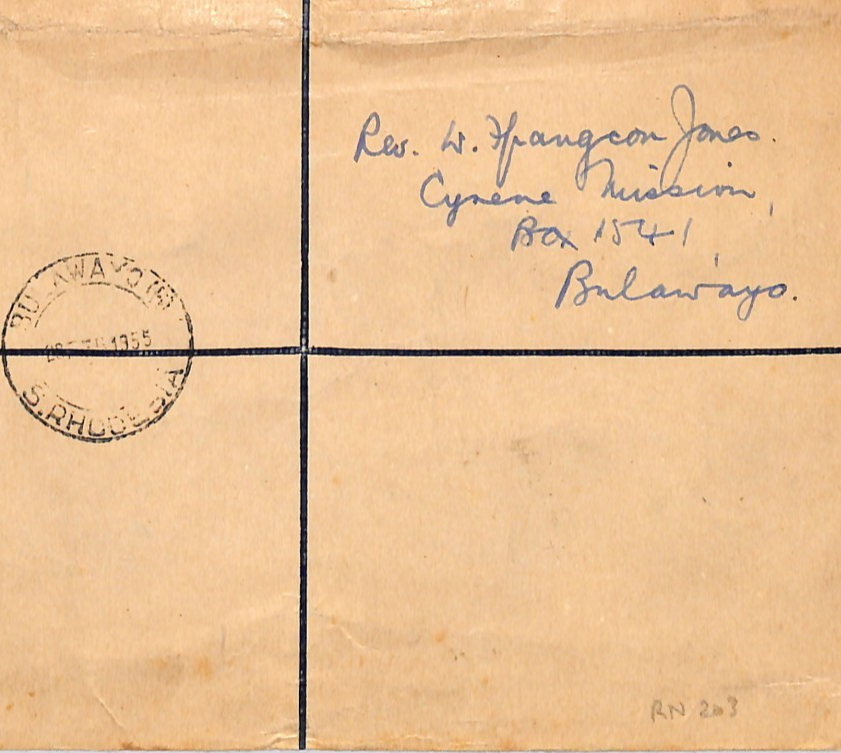 Rev. W. Ffrangcon Jones.
Cyrene Mission,
Box 1541,
Bulawayo.
BULAWAYO
1955
S. RHODESIA
RN 203